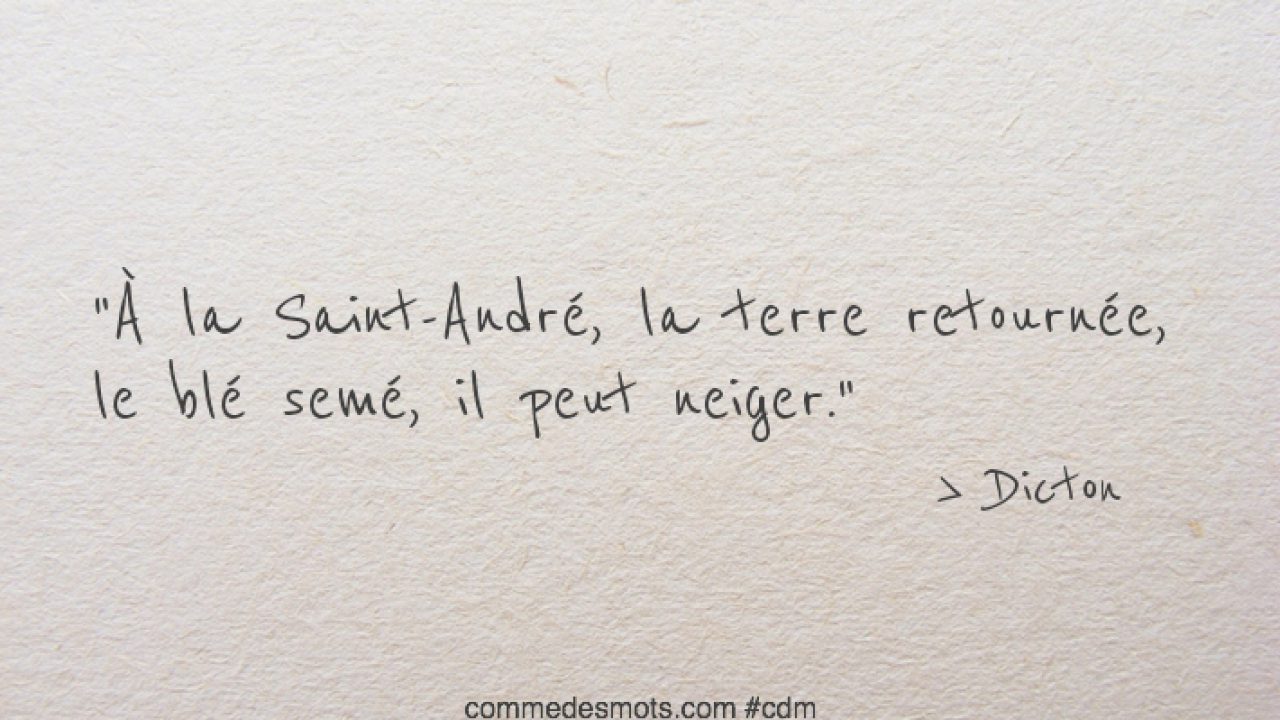 "À la Saint-André, la terre retournée,
le blé semé, il peut neiger."
> Dicton
commedesmots.com #cdm